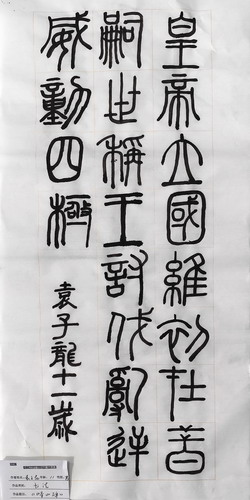 皇帝立國維初在昔
嗣世稱王討伐亂逆
威動四極
袁子龍十一歲